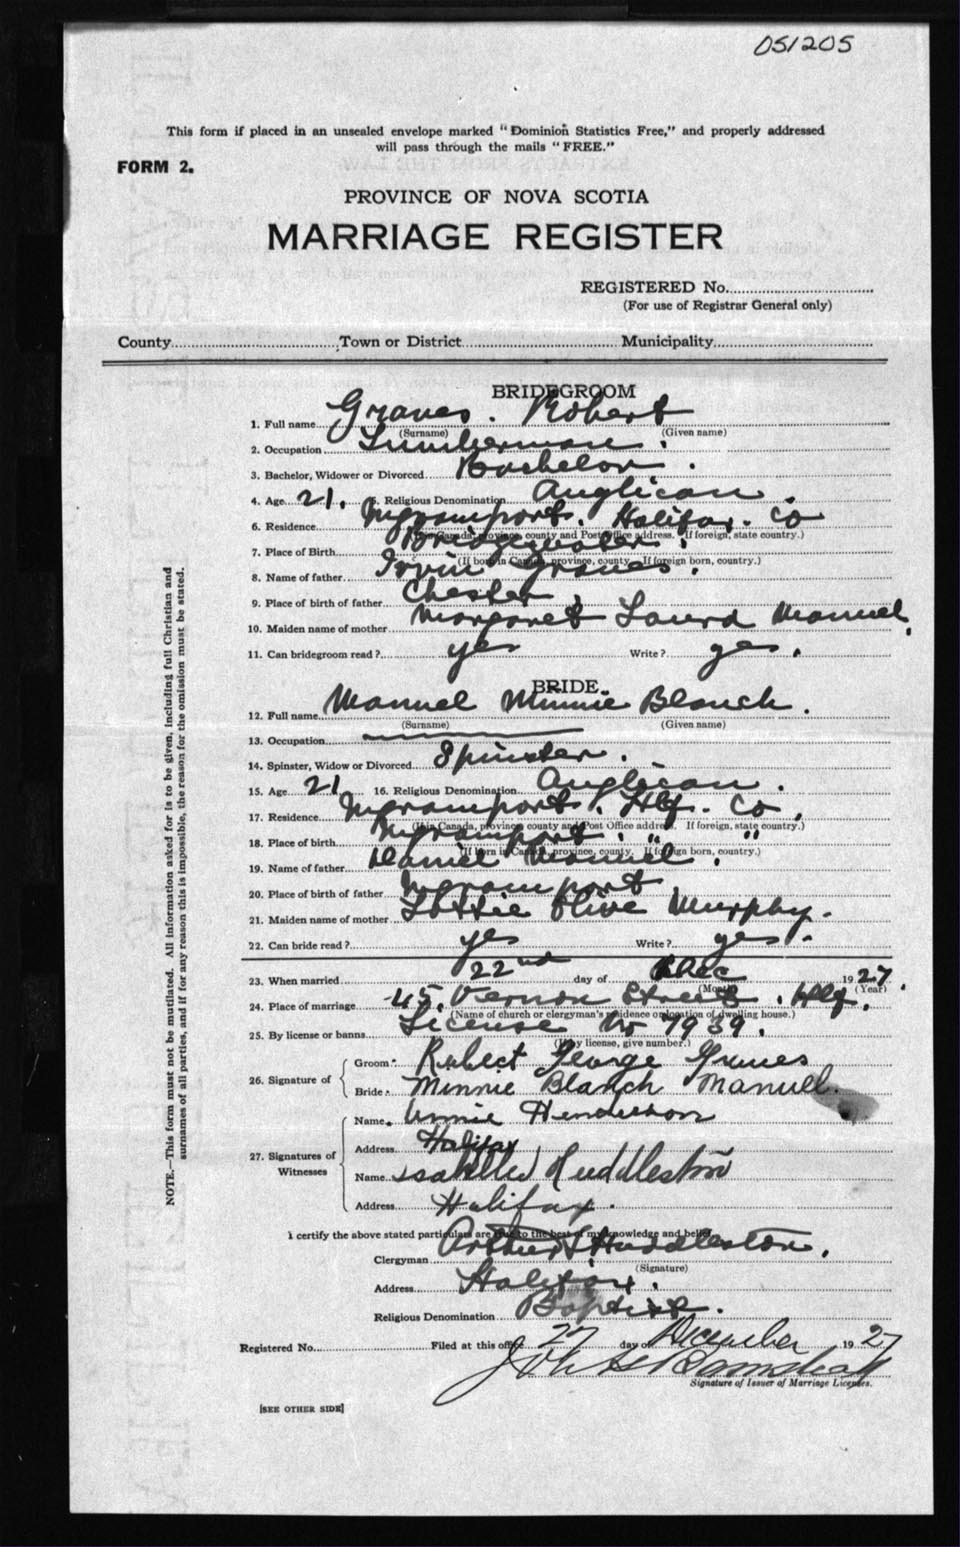 051205
This form if placed in an unsealed envelope marked "Dominion Statistics Free," and properly addressed
will pass through the mails "FREE."
FORM 2.
PROVINCE OF NOVA SCOTIA
MARRIAGE REGISTER
REGISTERED No.
(For use of Registrar General only)
County Town or District Municipality
BRIDEGROOM
1. Full name Graves. Robert
(Surname) (Given name)
2. Occupation Lumberman.
3. Bachelor, Widower or Divorced Bachelor.
4. Age 21. 5. Religious Denomination Anglican.
6. Residence Ingramport. Halifax. Co
(If in Canada, province, county and Post Office address. If foreign, state country.)
7. Place of Birth Bridgewater.
(If born in Canada, province, county. If foreign born, country.)
8. Name of father Irvin Graves.
9. Place of birth of father Chester.
10. Maiden name of mother Margaret Manuel.
11. Can bridegroom read? yes Write? yes.
BRIDE.
12. Full name Manuel Minnie Blanch.
(Surname) (Given name)
13. Occupation
14. Spinster, Widow or Divorced Spinster.
15. Age 21 16. Religious Denomination Anglican.
17. Residence Ingramport. Hfx. Co.
(If in Canada, province county and Post Office address. If foreign, state country.)
18. Place of birth Ingramport. " "
(If born in Canada, province, county. If foreign born, country.)
19. Name of father Daniel Manuel.
20. Place of birth of father Ingramport.
21. Maiden name of mother Lottie Olive Murphy.
22. Can bride read? yes Write? yes.
23. When married 22nd day of Dec 1927
(Month) (Year)
24. Place of marriage 45. Vernon Street. Hfx.
(Name of church or clergyman's residence or location of dwelling house.)
25. By license or banns License No 7939.
(If by license, give number.)
26. Signature of
Groom Robert George Graves
Bride Minnie Blanch Manuel
27. Signatures of Witnesses
Name Annie Henderson
Address Halifax
Name Isabelle Huddleston
Address Halifax.
I certify the above stated particulars are true to the best of my knowledge and belief.
Clergyman Arthur Huddleston.
(Signature)
Address Halifax.
Religious Denomination Baptist.
Registered No. Filed at this office 27 day of December 1927
Signature of Issuer of Marriage Licenses.
[SEE OTHER SIDE]
NOTE.—This form must not be mutilated. All information asked for is to be given, including full Christian and
surnames of all parties, and if for any reason this is impossible, the reason for the omission must be stated.